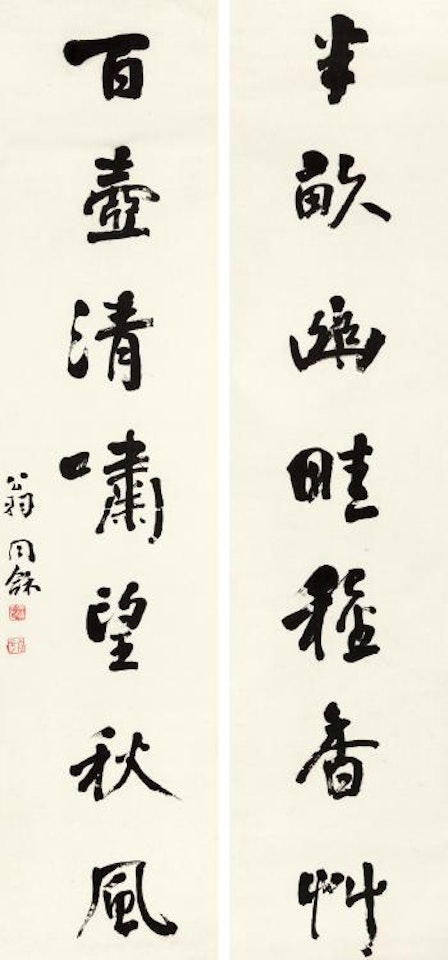 半畝幽畦種香艸
百壺清嘯望秋風
翁同龢